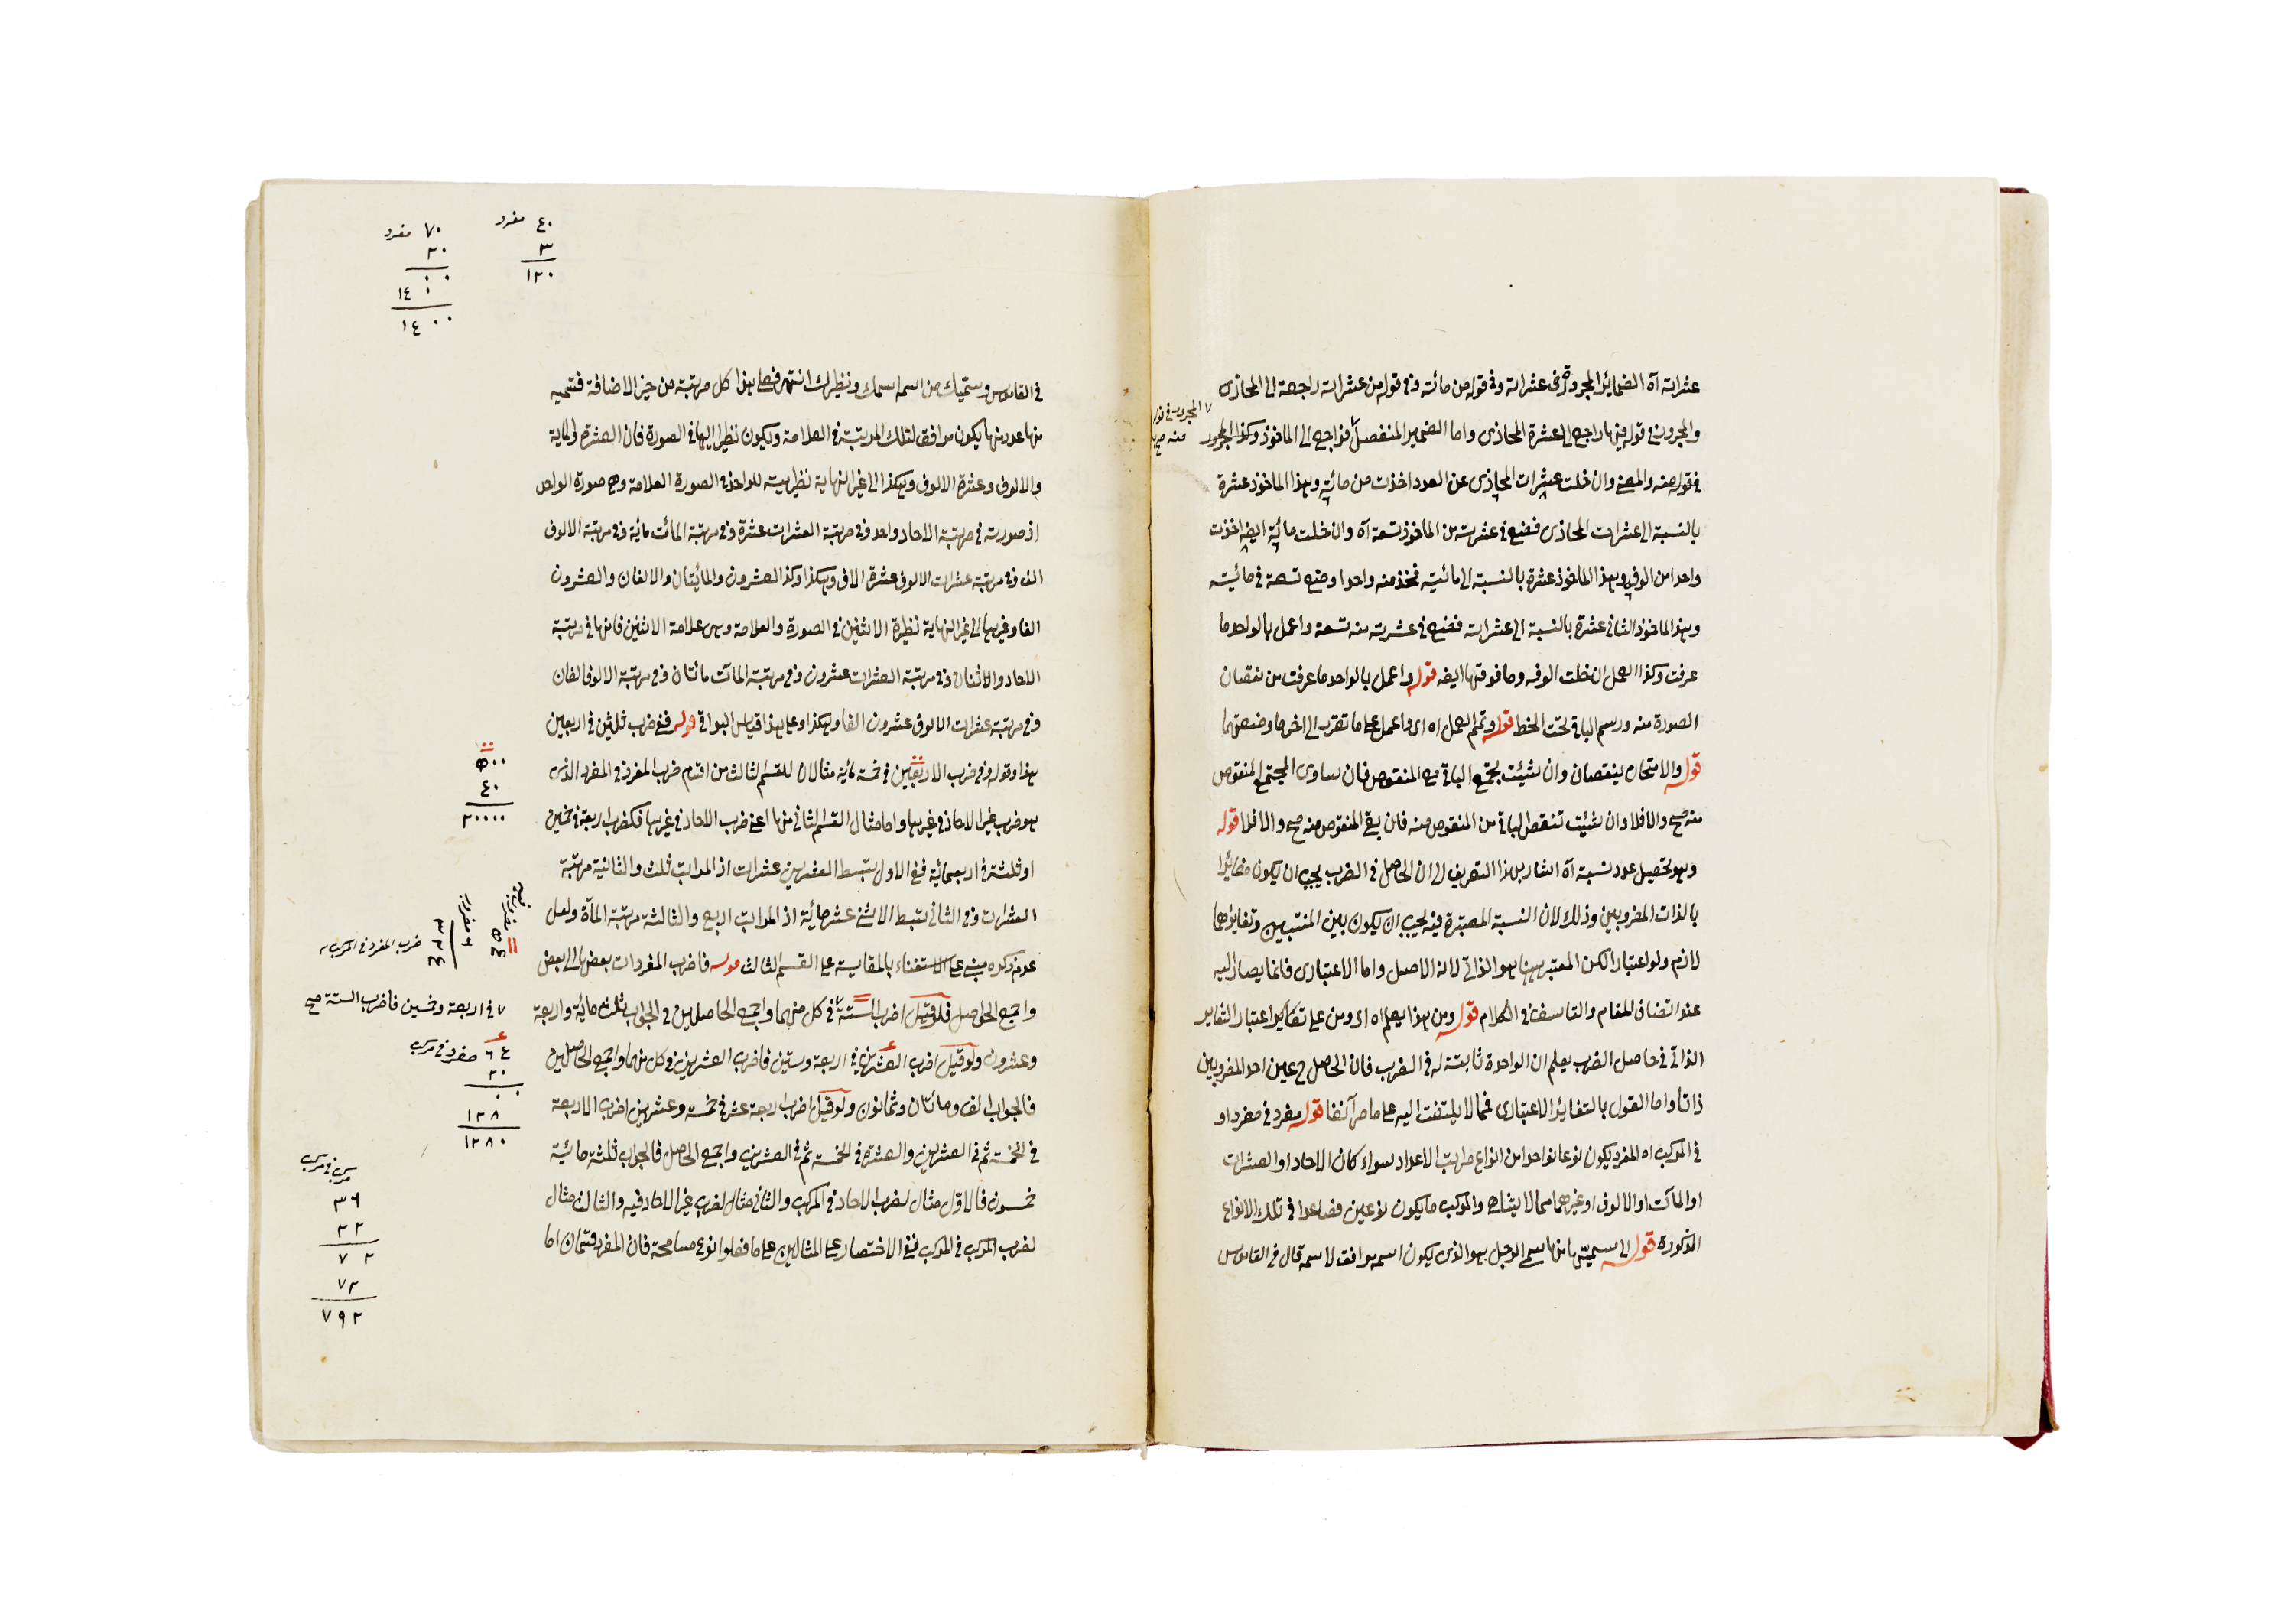 عشراته آه الضمائر المجرورة في عشراته وفي قوله من مائته وفي قوله من عشراته راجعة الى المحاذى
والمجرور في قوله فيها راجع الى العشرة المحاذى واما الضمير المنفصل فراجع الى الماخوذ وكذا المجرور
المجرور في قوله
منه صح
في قوله منه والمعنى وان خلت عشرات المحاذى عن العدد اخذت من مائته وهذا الماخوذ عشرة
بالنسبة الى عشرات المحاذى فضع في عشراته من الماخوذ تسعة آه وان خلت مائته ايضا اخذت
واحدا من الوفه وهذا الماخوذ عشرة بالنسبة الى مائته فخذ منه واحدا وضع تسعة في مائته
وهذا الماخوذ الثاني عشرة بالنسبة الى عشراته فضع في عشراته منه تسعة واعمل بالواحد ما
عرفت وكذا العمل ان خلت الوفه وما فوقها ايضه قوله واعمل بالواحد ما عرفت من نقصان
الصورة منه ورسم الباقي تحت الخط قوله وتمم العمل اه اى واعمل على ما تقرر الى اخرها وضعتهما
قوله والامتحان بنقصان وان شيئت بجمع الباقي مع المنقوص فان ساوى المجتمع المنقوص
منه صح والافلا وان شيئت تنقص الباقي من المنقوص منه فان بقي المنقوص منه صح والافلا قوله
وهو تحصيل عدد نسبة آه اشار بهذا التعريف الى ان الحاصل في الضرب يجب ان يكون مغائرا
بالذات المضروبين وذلك لان النسبة المعتبرة فيه يجب ان يكون بين المنتسبين وتغايرهما
لازم ولو اعتبارا لكن المعتبر ههنا هو الذاتي لانه الاصل واما الاعتبارى فانما يصار اليه
عند اتضاق المقام والتاسف في الكلام قوله ومن هذا يعلم اه اى ومن على تقدير اعتبار التغاير
الذاتي في حاصل الضرب يعلم ان الواحدة ثابتة له في الضرب فان الحاصل ح عين احد المضروبين
ذاتا واما القول بالتغاير الاعتبارى فمما لا يلتفت اليه على ما مر آنفا قوله مفرد في مفرد او
في المركب اه المفرد يكون نوعا واحدا من انواع مراتب الاعداد سواء كان الاحاد او العشرات
او المآت او الالوف او غيرهما مما لا يتناهى والمركب ما يكون نوعين فصاعدا في تلك الانواع
المذكورة قوله الى سميتها منها سمي الرجل هو الذى يكون اسمه موافق لاسمه قال في القاموس
٤٠ مفرد
٣
١٢٠
٧٠ مفرد
٢٠
٠٠
١٤٠
١٤٠٠
في القاموس وسميك من اسمه اسمك ونظيرك انتهى فعلى هذا كل مرتبة من حيز الاضافة فسميه
منها عدد منها يكون موافق لتلك المرتبة في العلامة ويكون نظيرا اليها في الصورة فان العشرة والماية
والالوف وعشرة الالوف وهكذا الى غير النهاية نظيريته للواحد في الصورة العلامة وهي صورة الواحد
اذ صورته في مرتبة الاحاد واحد وفي مرتبة العشرات عشرة وفي مرتبة المآت مائة وفي مرتبة الالوف
الف وفي مرتبة عشرات الالوف عشرة الاف وهكذا وكذا العشرون والمائتان والالفان والعشرون
الفا وغيرها الى غير النهاية نظيرة الاثنين في الصورة والعلامة وهي علامة الاثنين فانها في مرتبة
الاحاد والاثنان وفي مرتبة العشرات عشرون وفي مرتبة المآت مائتان وفي مرتبة الالوف الفان
وفي مرتبة عشرات الالوف عشرون الفا وهكذا وعلى هذا قياس البواقي قوله ففي ضرب ثلثين في اربعين
هذا وقوله وفي ضرب الاربعين في خمسمائة مثالان للقسم الثالث من اقسام ضرب المفرد في المفرد الذى
هو ضرب غير الاحاد في غيرها واما مثال القسم الثاني منها اعني ضرب الاحاد في غيرها فكضرب اربعة في خمسين
او ثلثة في اربعمائة ففي الاول تبسط العشرين عشرات اذ المراتب ثلث والثانية مرتبة
العشرات وفي الثاني تبسط الاثني عشر مائة اذ المراتب اربع والثالثة مرتبة المآة ولعل
عدم ذكره مبني على الاستغناء بالمقايسة على القسم الثالث قوله فاضرب المفردات بعضها الى بعض
واجمع الحواصل فلو قيل اضرب الستة في كل منهما واجمع الحاصلين في الجواب ثلث مائة واربعة
وعشرون ولو قيل اضرب العشرين في اربعة وستين فاضرب العشرين في كل منهما واجمع الحاصلين
فالجواب الف ومائتان وثمانون ولو قيل اضرب اربعة عشر في خمسة وعشرين اضرب الاربعة
في الخمسة ثم في العشرين والعشرة في الخمسة ثم في العشرين واجمع الحاصل فالجواب ثلثة مائة
خمسون فالاول مثال لضرب الاحاد في المركب والثاني مثال لضرب غير الاحاد فيه والثالث مثال
لضرب المركب في المركب ففي الاختصار على المثالين على ما فعلوا نوع مسامحة فان المفرد قسمان اما
٥٠٠
٤٠
٢٠٠٠٠
٥٤
٦ مضروب
٣٢٤
ضرب المفرد في المركب
٧ في اربعة وخمسين فاضرب الستة صح
٦٤ مفرد في مركب
٢٠
٠٠
١٢٨
١٢٨٠
مركب في مركب
٣٦
٢٢
٧٢
٧٢
٧٩٢